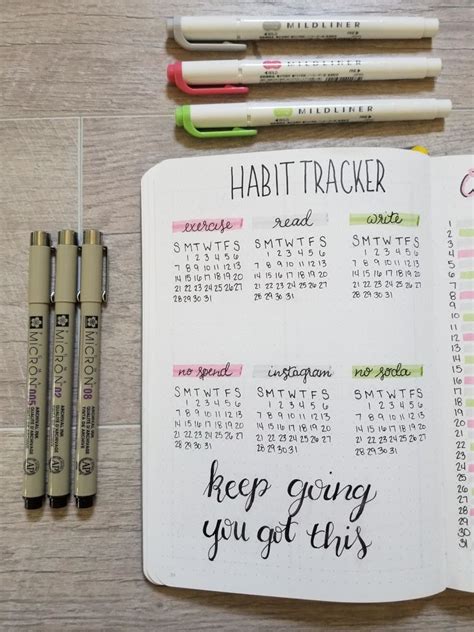 MILDLINER
MILDLINER
MILDLINER
HABIT TRACKER
exercise
S M T W T F S
1 2 3 4 5 6
7 8 9 10 11 12 13
14 15 16 17 18 19 20
21 22 23 24 25 26 27
28 29 30 31
read
S M T W T F S
1 2 3 4 5 6
7 8 9 10 11 12 13
14 15 16 17 18 19 20
21 22 23 24 25 26 27
28 29 30 31
write
S M T W T F S
1 2 3 4 5 6
7 8 9 10 11 12 13
14 15 16 17 18 19 20
21 22 23 24 25 26 27
28 29 30 31
no spend
S M T W T F S
1 2 3 4 5 6
7 8 9 10 11 12 13
14 15 16 17 18 19 20
21 22 23 24 25 26 27
28 29 30 31
instagram
S M T W T F S
1 2 3 4 5 6
7 8 9 10 11 12 13
14 15 16 17 18 19 20
21 22 23 24 25 26 27
28 29 30 31
no soda
S M T W T F S
1 2 3 4 5 6
7 8 9 10 11 12 13
14 15 16 17 18 19 20
21 22 23 24 25 26 27
28 29 30 31
keep going
you got this
MICRON 005
ARCHIVAL INK
MICRON 02
ARCHIVAL INK
MICRON 08
ARCHIVAL INK
1
2
3
4
5
6
7
8
9
10
11
12
13
14
15
16
17
18
19
20
21
22
23
24
25
26
27
28
29
30
31